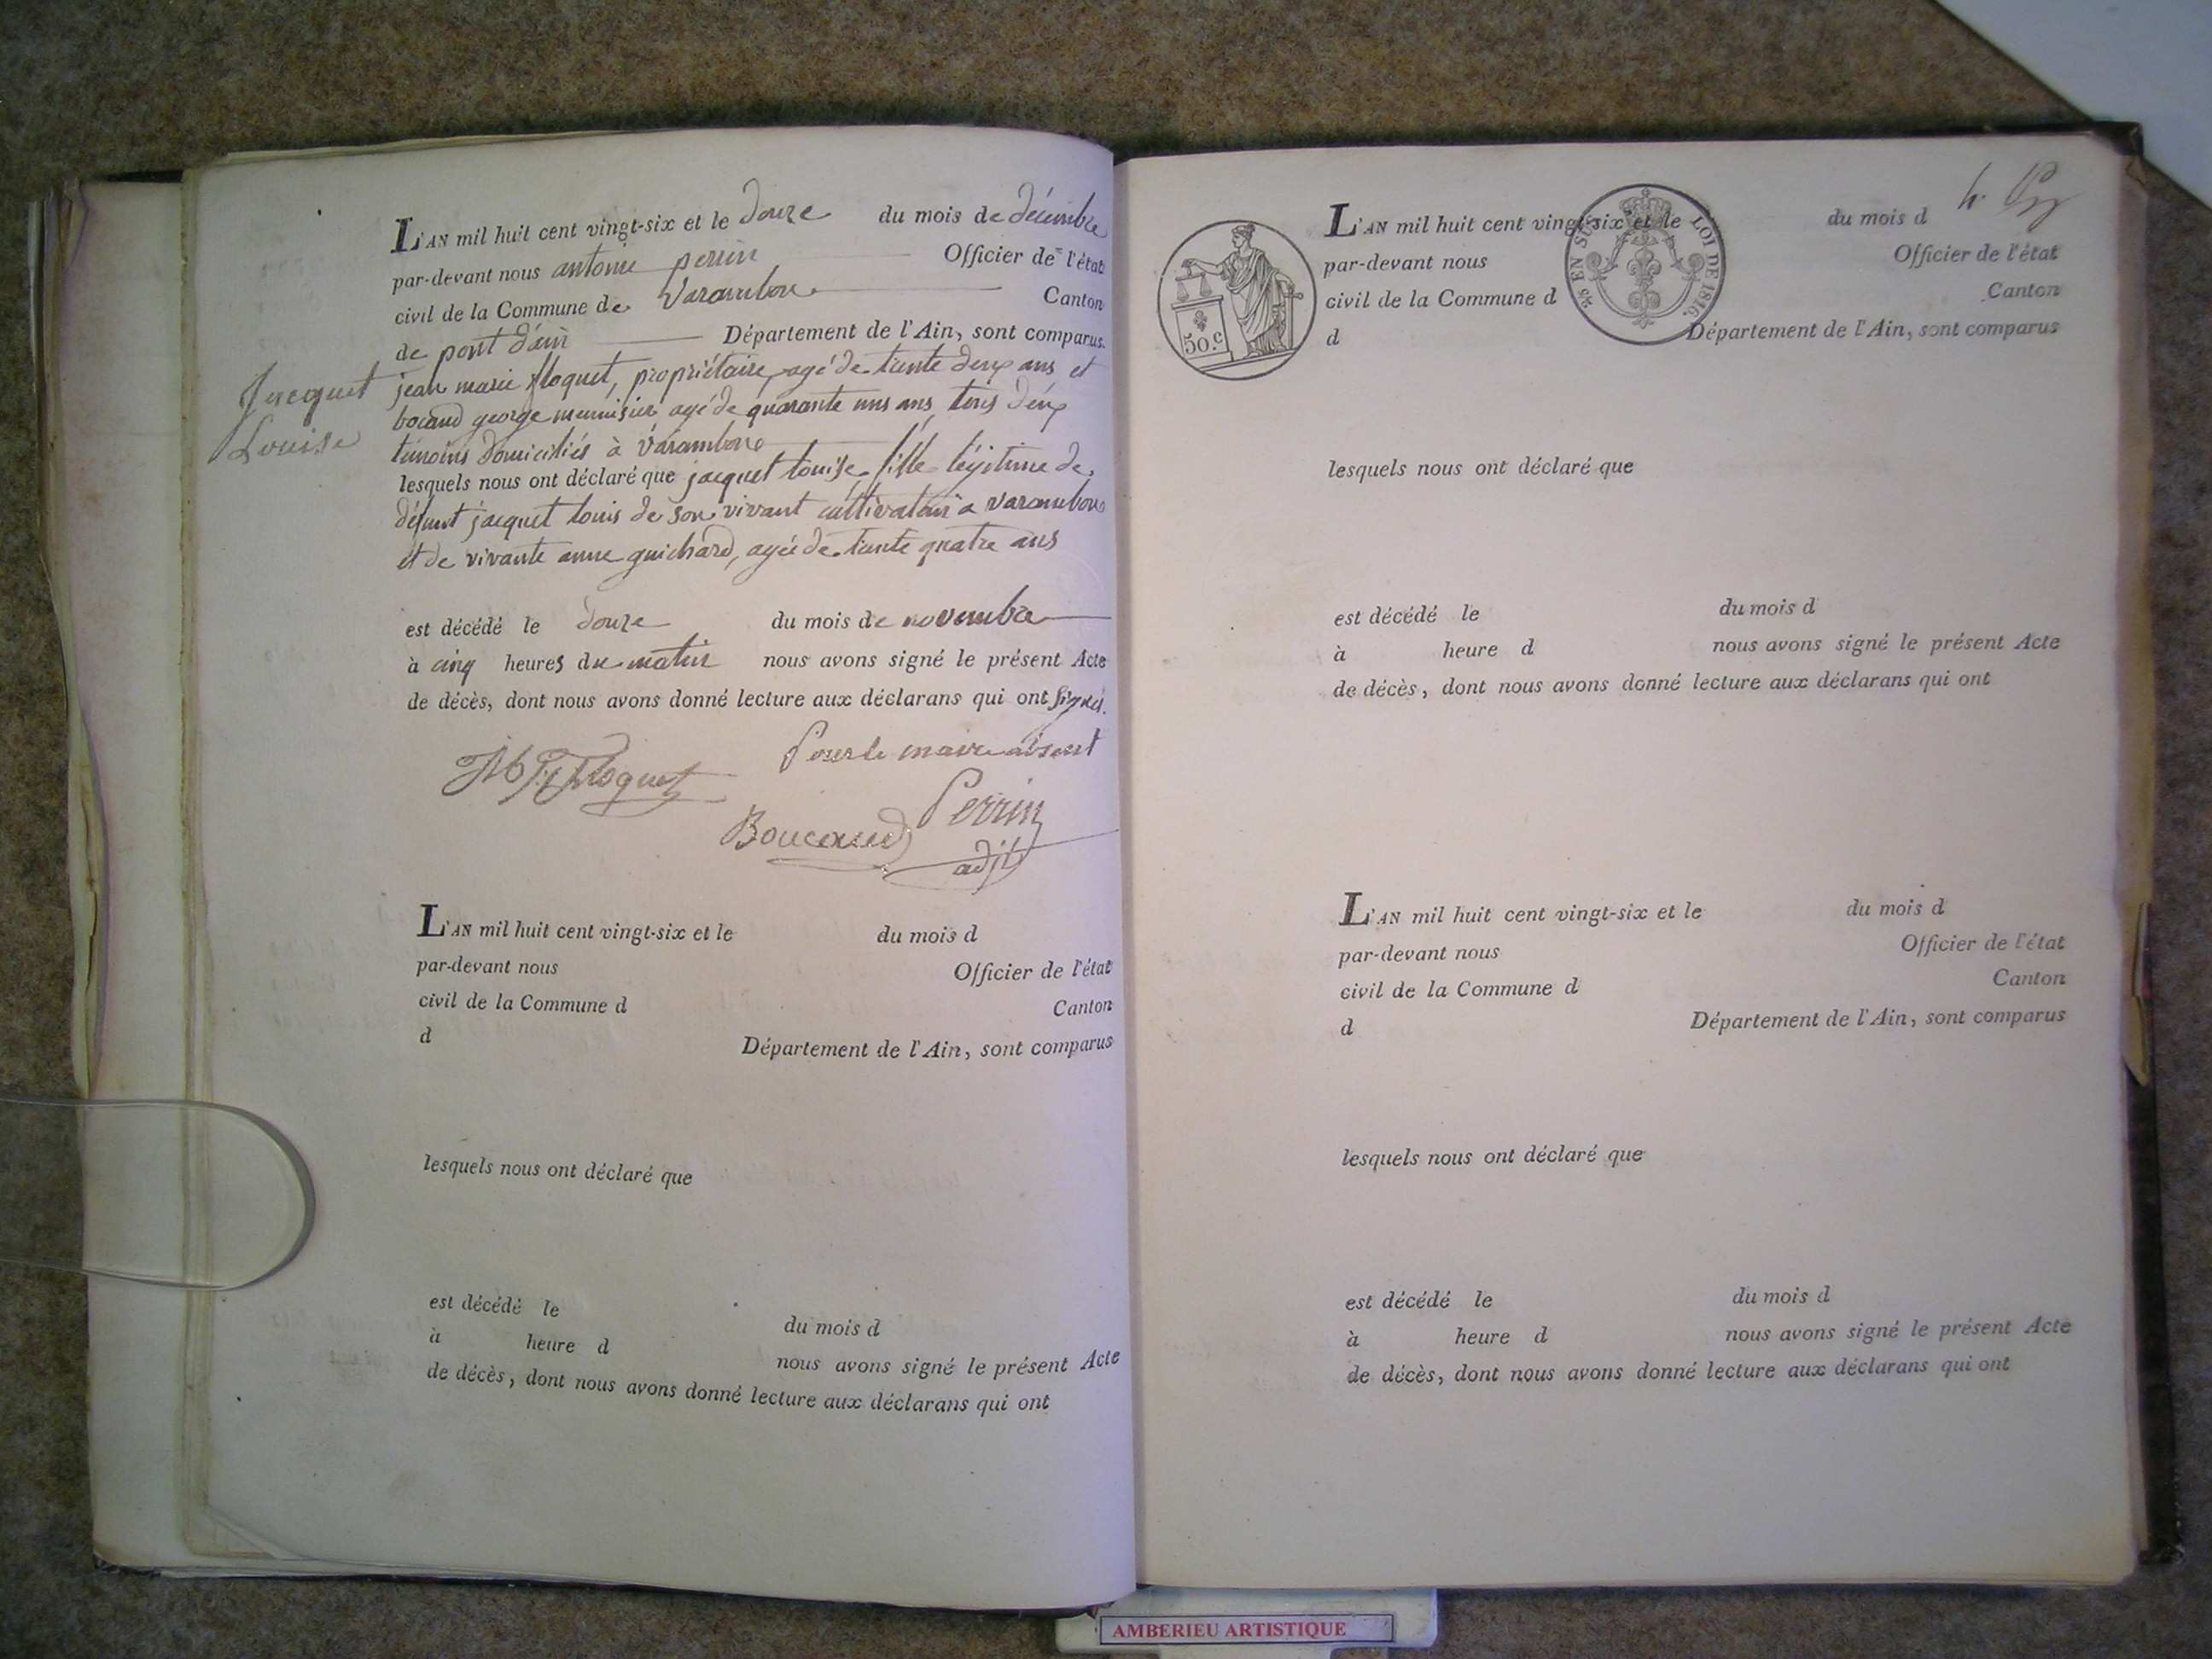 L'AN mil huit cent vingt-six et le douze du mois de décembre
par-devant nous antoine perrin Officier de l'état
civil de la Commune de Varambon Canton
de pont d'ain Département de l'Ain, sont comparus
Jacquet
Louise
jean marie floquet, propriétaire, agé de trente deux ans et
bocaud george menuisier agé de quarante uns ans, tous deux
témoins domiciliés à Varambon
lesquels nous ont déclaré que jacquet louise, fille légitime de
défunt jacquet louis de son vivant cultivateur a varambon
et de vivante anne guichard, agée de trente quatre ans
est décédé le douze du mois de novembre
à cinq heures du matin nous avons signé le présent Acte
de décès, dont nous avons donné lecture aux déclarans qui ont signés.
Pour le maire absent
floquet
Perrin
Boucaud
adjt
L'AN mil huit cent vingt-six et le du mois d
par-devant nous Officier de l'état
civil de la Commune d Canton
d Département de l'Ain, sont comparus
lesquels nous ont déclaré que
est décédé le du mois d
à heure d nous avons signé le présent Acte
de décès, dont nous avons donné lecture aux déclarans qui ont
50 c
25 EN SUS LOI DE 1816.
L'AN mil huit cent vingt-six et le du mois d
par-devant nous Officier de l'état
civil de la Commune d Canton
d Département de l'Ain, sont comparus
lesquels nous ont déclaré que
est décédé le du mois d
à heure d nous avons signé le présent Acte
de décès, dont nous avons donné lecture aux déclarans qui ont
L'AN mil huit cent vingt-six et le du mois d
par-devant nous Officier de l'état
civil de la Commune d Canton
d Département de l'Ain, sont comparus
lesquels nous ont déclaré que
est décédé le du mois d
à heure d nous avons signé le présent Acte
de décès, dont nous avons donné lecture aux déclarans qui ont
AMBERIEU ARTISTIQUE